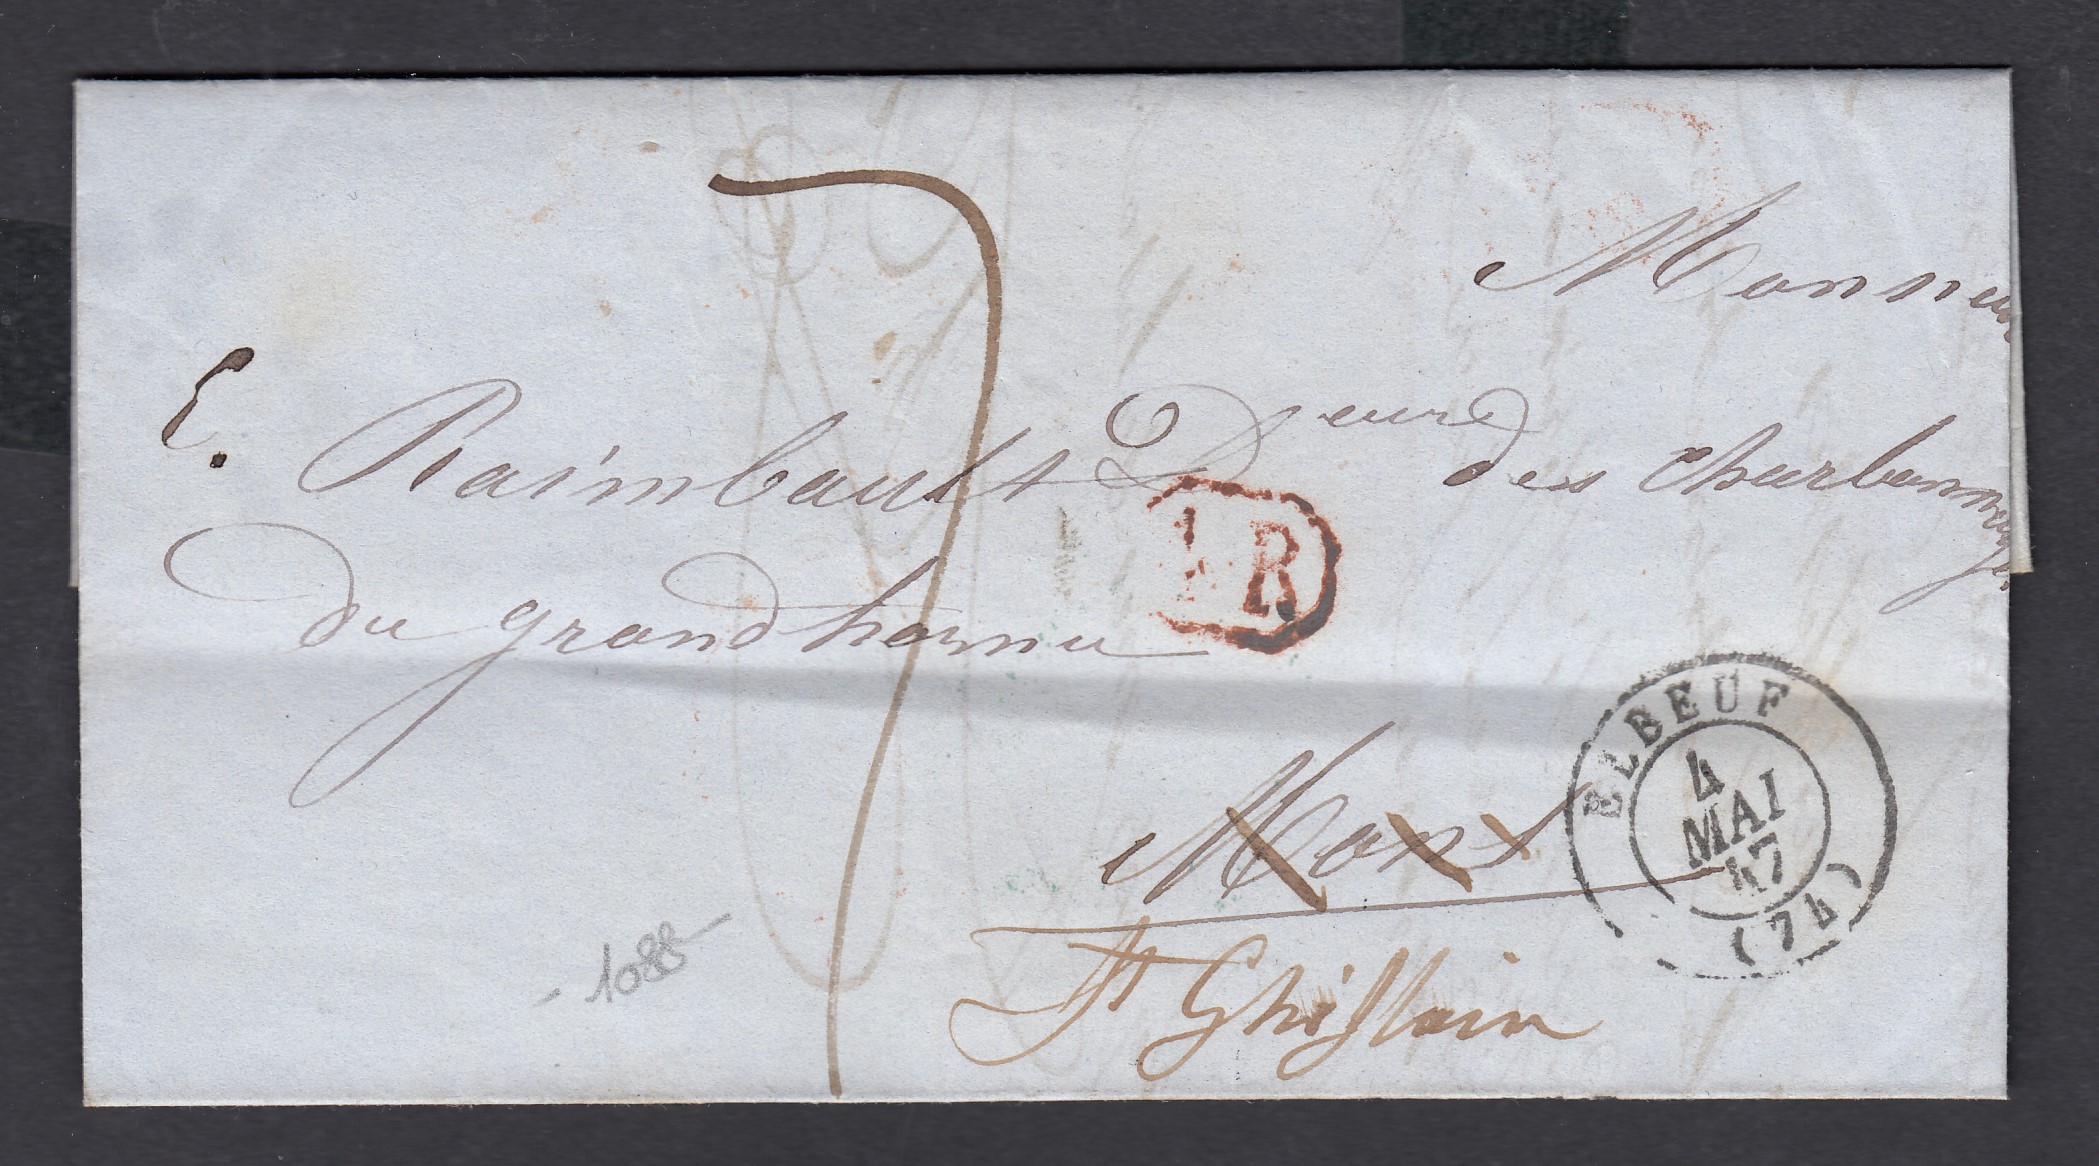 Monsieur
E. Raimbault Deur des charbonnages
du grand hornu
1 R
Mons
St Ghislain
ELBEUF
4
MAI
47
(74)
7
- 1088 -